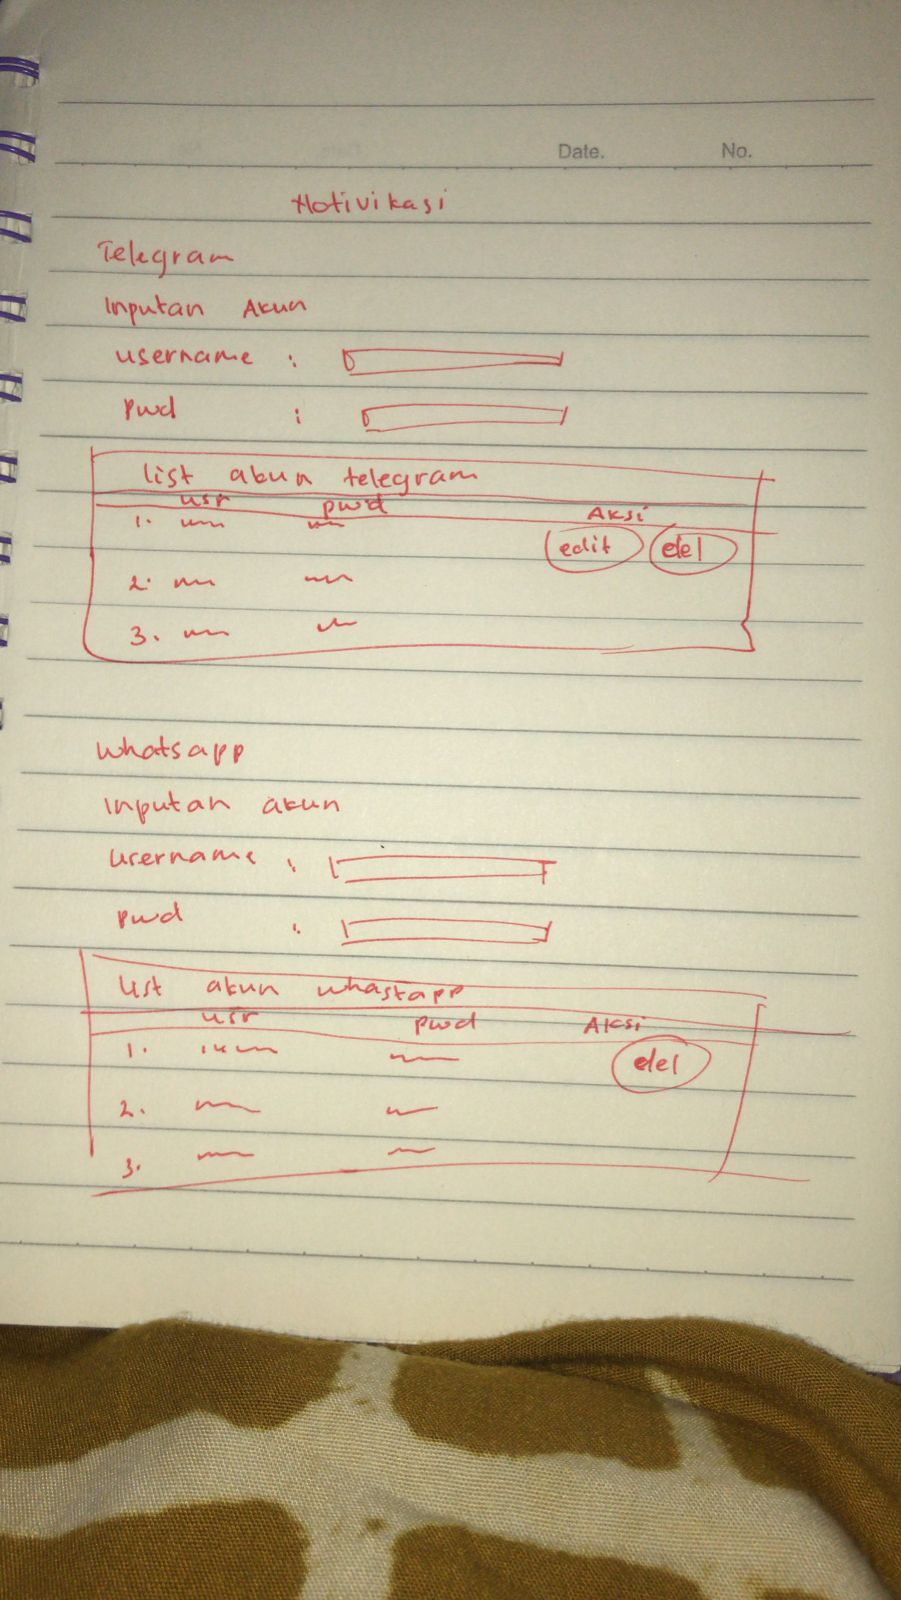 Date. No.
Notivikasi
Telegram
Inputan Akun
username :
pwd :
list akun telegram
usr pwd Aksi
1.
edit del
2.
3.
Whatsapp
Inputan akun
username :
pwd :
list akun whastapp
usr pwd Aksi
1.
del
2.
3.